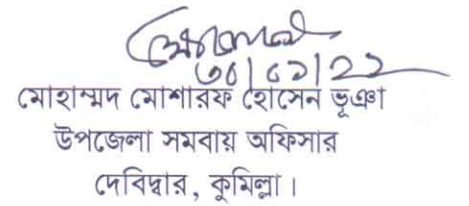 ৩০/০১/২২
মোহাম্মদ মোশারফ হোসেন ভূঞা
উপজেলা সমবায় অফিসার
দেবিদ্বার, কুমিল্লা।